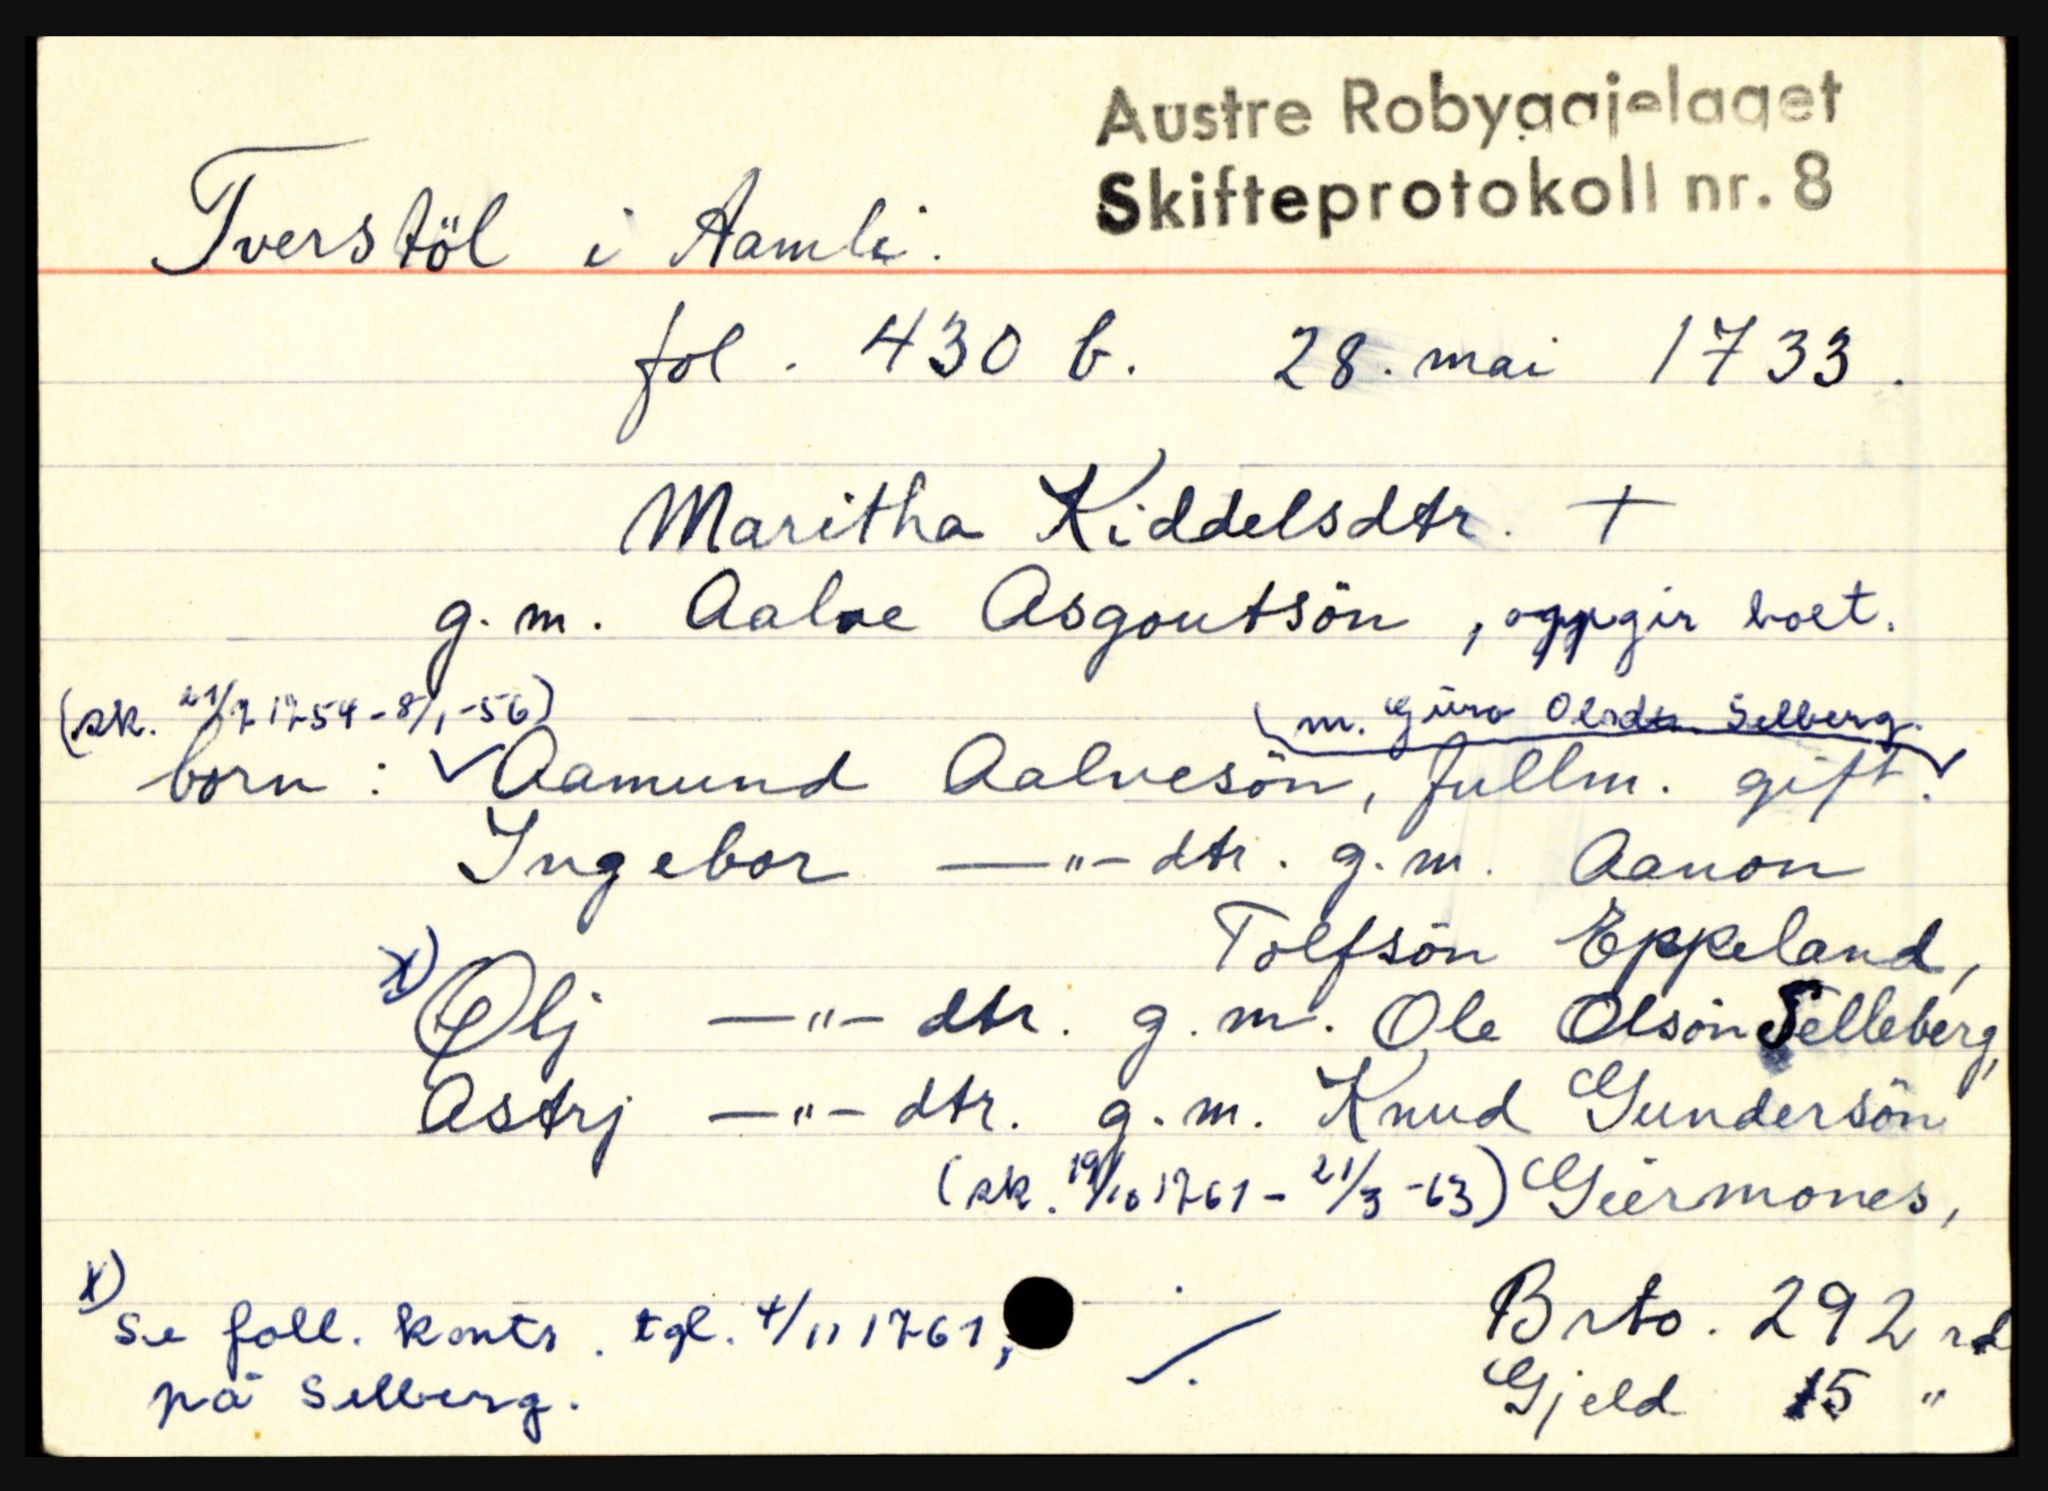 Austre Robyggjelaget
Skifteprotokoll nr. 8
Tverstöl i Aamli.
fol. 430 b. 28. mai 1733.
Maritha Kiddelsdtr. +
g. m. Aalve Asgoutsön, oppgir boet.
(sk. 21/2 1754 - 8/1 -56)
(m. Guro Olsdtr. Selberg.
born : ✓ Aamund Aalvesön, fullm. gift.
Ingebor —"— dtr. g. m. Aanon
Tolfsön Eppeland,
x) Ølj —"— dtr. g. m. Ole Olsön Selleberg,
Astrj —"— dtr. g. m. Knud Gundersön
(sk. 19/10 1761 - 21/3 -63) Giermones,
x) Se foll. kontr. tgl. 4/11 1761,
på Selberg.
Brto. 292 rd
Gjeld 15 "